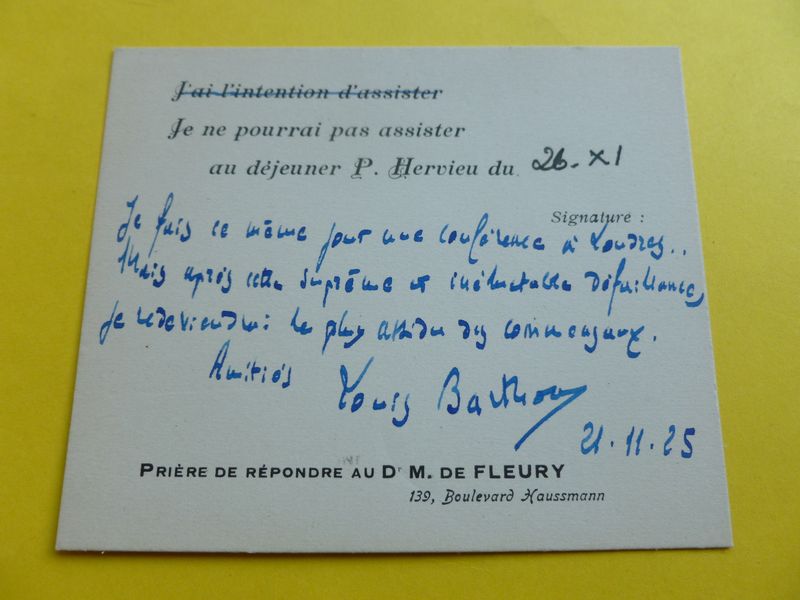 J'ai l'intention d'assister
Je ne pourrai pas assister
au déjeuner P. Hervieu du 26-XI
Signature :
Je fais ce même jour une conférence à Londres..
Mais après cette suprême et inéluctable défaillance,
je redeviendrai le plus assidu des commensaux.
Amitiés Louis Barthou
21.11.25
PRIÈRE DE RÉPONDRE AU Dr M. DE FLEURY
139, Boulevard Haussmann